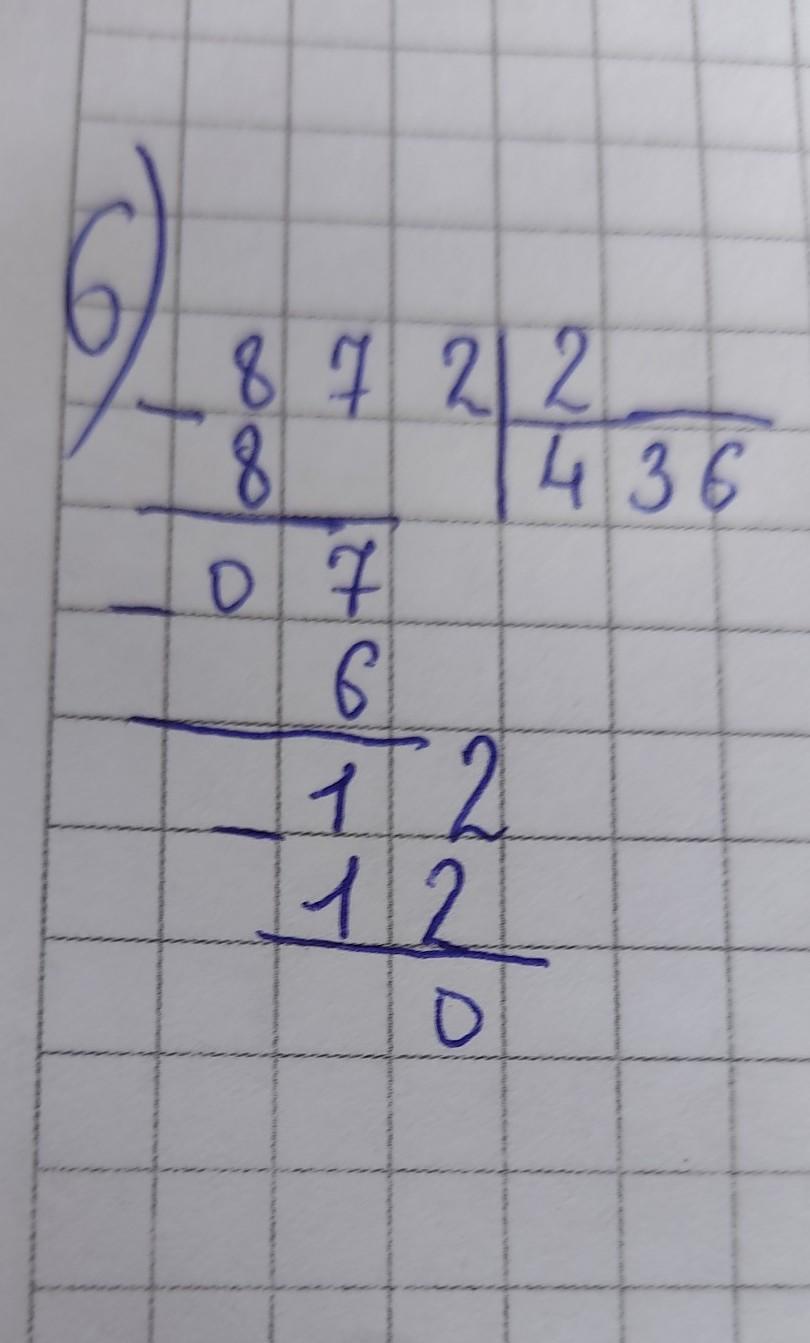 6)
- 8 7 2 | 2
8 | 4 3 6
- 0 7
6
- 1 2
1 2
0